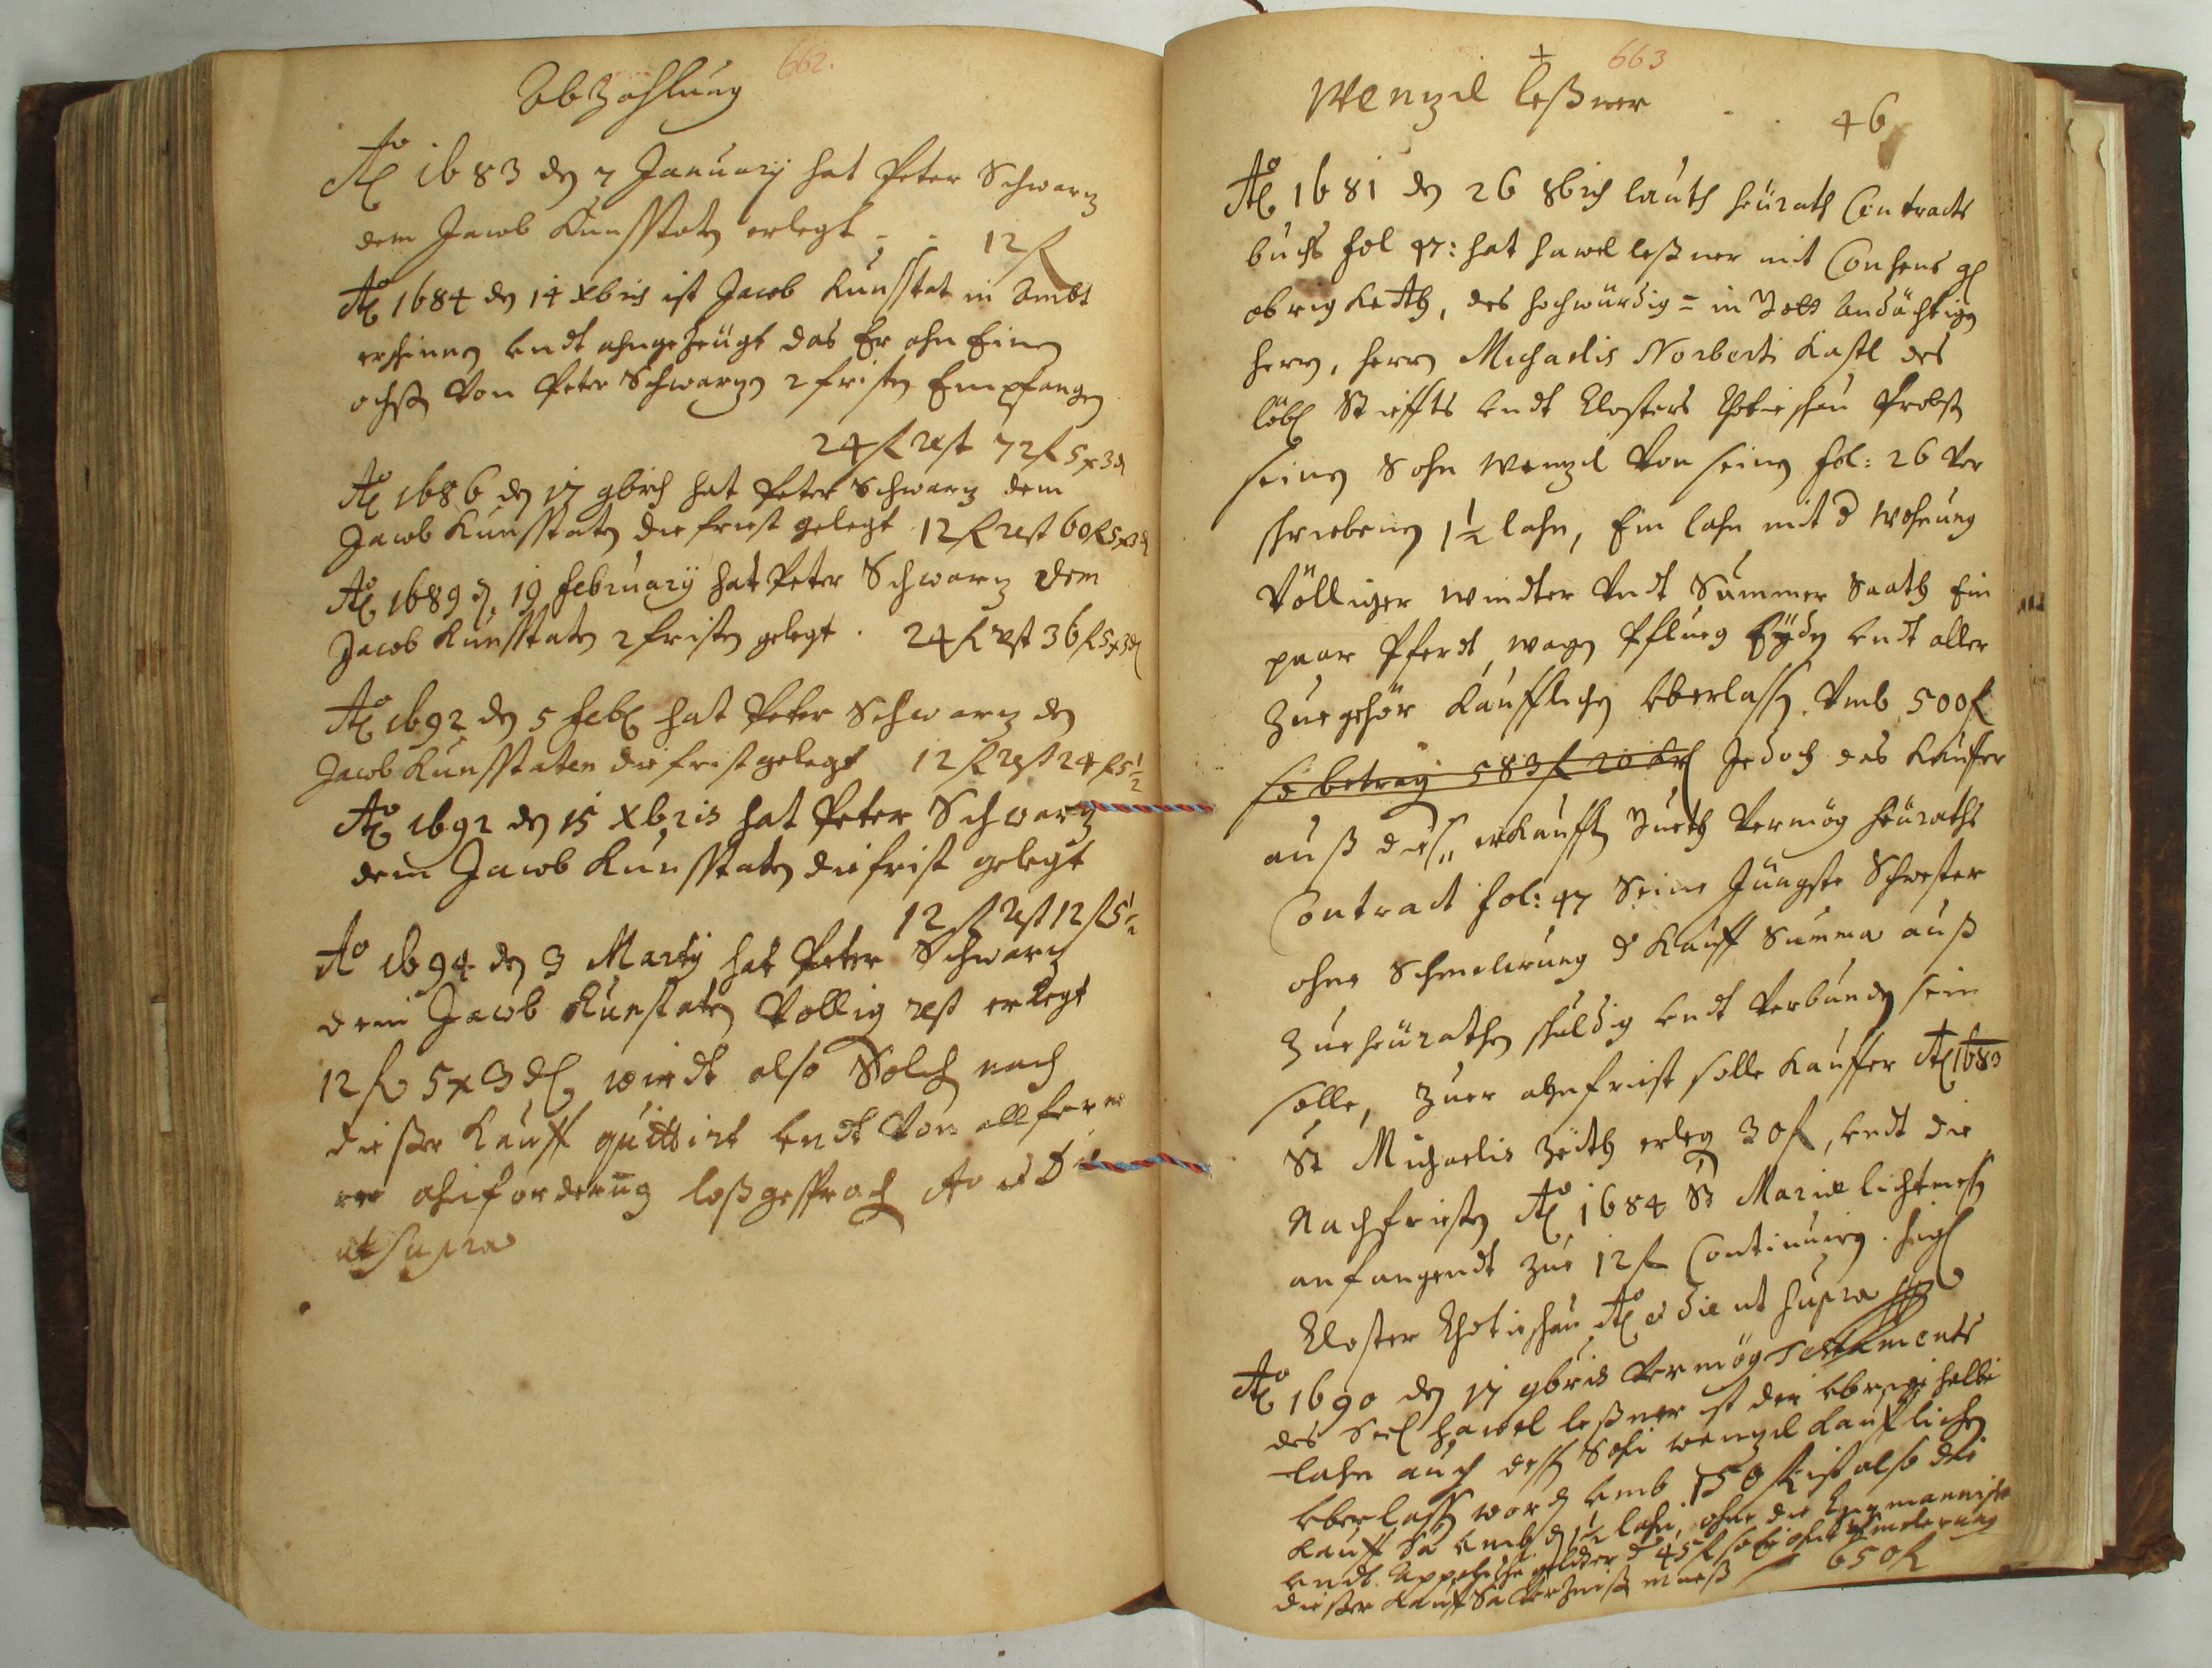 662.
Abzahlung
Ao 1683 den 7 January hat Peter Schwartz
dem Jacob Kunsstaten erlegt - - 12 f
Ao 1684 den 14 Xbris ist Jacob Kunsstat in Ambt
erschienen undt ahngezeugt das Er ahn Einen
ochsen Von Peter Schwarzen 2 fristen Empfangen
24 f rest 72 f 5 x 3 d
Ao 1686 den 17 9bris hat Peter Schwartz dem
Jacob Kunsstaten die frist gelegt 12 f rest 60 f 5 x 3 d
Ao 1689 d. 19 February hat Peter Schwartz dem
Jacob Kunsstaten 2 fristen gelegt . 24 f rest 36 f 5 x 3 d
Ao 1692 den 5 Feb hat Peter Schwartz den
Jacob Kunsstaten die frist gelegt 12 f rest 24 f 5 1/2
Ao 1692 den 15 Xbris hat Peter Schwartz
dem Jacob Kunsstaten die frist gelegt
12 f rest 12 f 5 1/2
Ao 1694 den 3 Marty hat Peter Schwartz
dem Jacob Kunstaten Vollig rest erlegt
12 f 5 x 3 d wirdt also Solch nach
dießer Kauff quittirt undt Von all ferne
rer ahnforderung loßgesproch Ao et Die
ut supra
663
Wenzel Leßner
46
Ao 1681 den 26 8bris lauth heürath Contracts
buchs fol 47: hat Hawel Leßner mit Consens
obrigkeith, des hochwürdig= in Gott Andächtigen
herrn, herrn Michaelis Norberti Kastl des
löbl Stiffts undt Closters Chotieschau Probsten
seinen Sohn Wenzel Von seinen fol: 26 Ver
schriebenen 1 1/2 lahn, Ein lahn mit d Wohnung
Völliger windter Undt Summer Saath Ein
paar Pferdt, wagen Pflueg Eyden undt aller
Zuegehör Kaufflichen Uberlassen Umb 500 f
so betrag 583 f 20 Jedoch das Kauffer
auß dießen erkaufften Vermög heüraths
Contract fol: 47 Seine Jüngste Schwester
ohne Schmelerung d Kauff Summa auß
Zueheürathen schuldig undt Verbunden sein
solle, Zuer ahnfrist solle Kauffer Ao 1683
St Michaelis Zeith erleg 30 f, undt die
Nachfristen Ao 1684 St Mariae lichtmeß
anfangendt zue 12 f Continuirn.
Closter Chotieschau Ao et die ut supra
Ao 1690 den 17 9bris Vermög Testaments
des Seel Hawel Leßner ist der ubrige halbe
lahn auch dessen Sohn Wenzel Kaufflichen
uberlassen worden umb 150 f ist also die
Kauff Sa umb d 1 1/2 lahn, ohne die
undt gelder d 45 f Schmelerung
dießer Kauff Sa
650 f